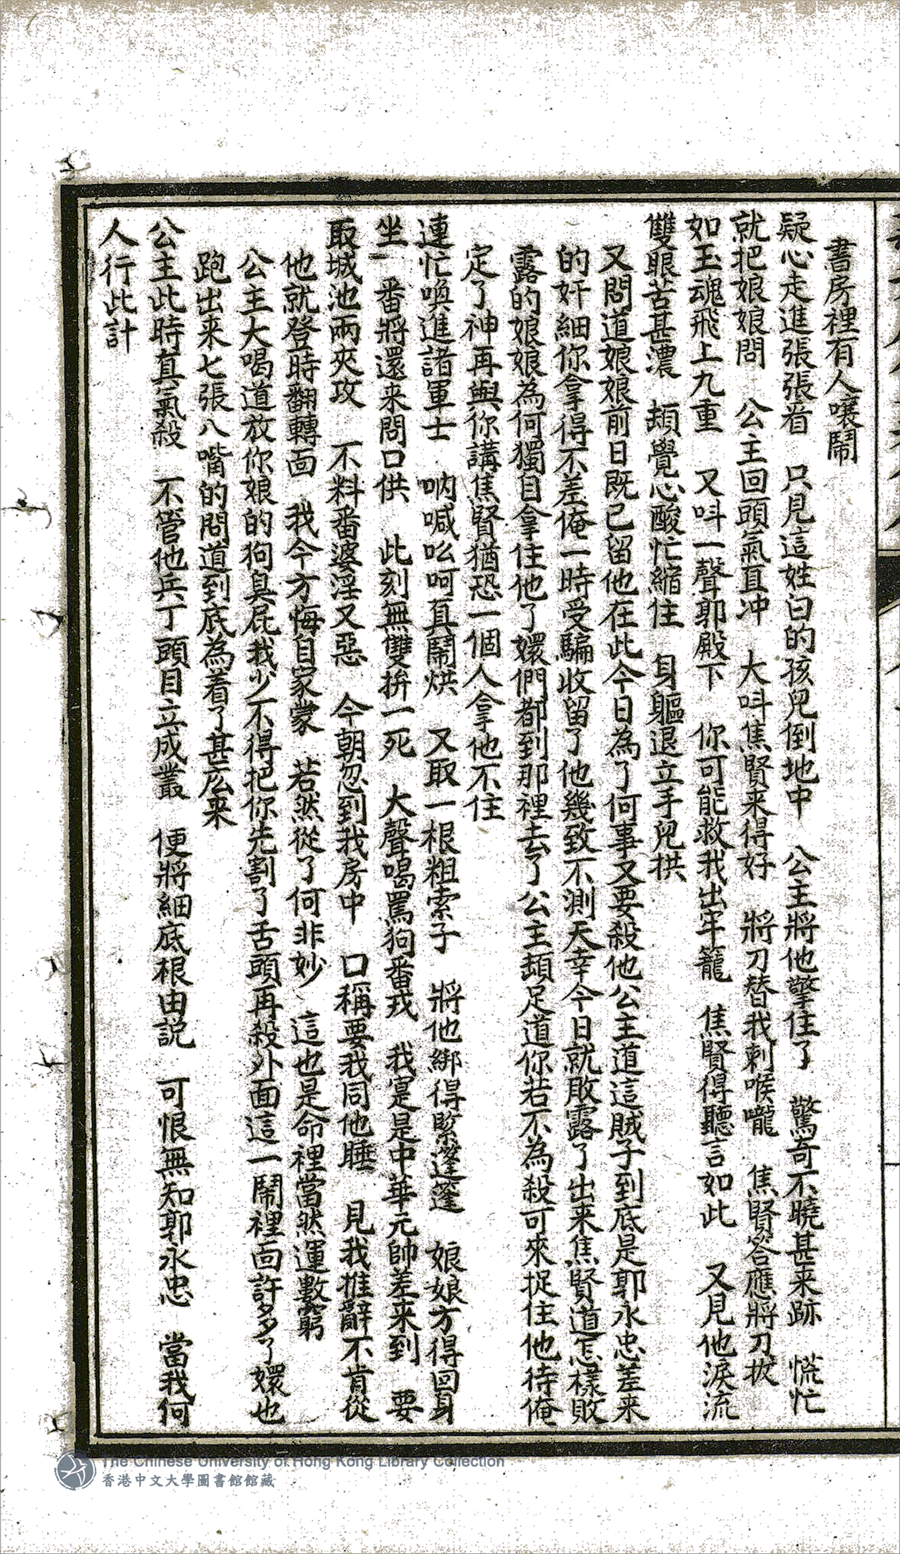 書房裡有人嚷鬧
疑心走進張張看　只見這姓白的孩兒倒地中　公主將他擎住了　驚奇不曉甚來跡　慌忙
就把娘娘問　公主回頭氣直冲　大呌焦賢来得好　將刀替我剌喉嚨　焦賢答應將刀拔
如玉魂飛上九重　又呌一聲郭殿下　你可能救我出牢籠　焦賢得聽言如此　又見他淚流
雙眼苦甚濃　頻覺心酸忙縮住　身軀退立手兒拱
又問道娘娘前日既已留他在此今日為了何事又要殺他公主道這賊子到底是郭永忠差来
的奸細你拿得不差俺一時受騙收留了他幾致不測天幸今日就敗露了出来焦賢道怎樣敗
露的娘娘為何獨自拿住他了嬛們都到那裡去了公主頓足道你若不為殺可來捉住他待俺
定了神再與你講焦賢猶恐一個人拿他不住
連忙喚進諸軍士　吶喊吆呵真鬧烘　又取一根粗索子　將他綁得緊篷篷　娘娘方得回身
坐　番將還来問口供　此刻無雙拚一死　大聲喝罵狗番戎　我寔是中華元帥差来到　要
取城池兩夾攻　不料番婆淫又惡　今朝忽到我房中　口稱要我同他睡　見我推辭不肯從
他就登時翻轉面　我今方悔自家蒙　若然從了何非妙　這也是命裡當然運數窮
公主大喝道放你娘的狗臭屁我少不得把你先割了舌頭再殺外面這一鬧裡面許多了嬛也
跑出来七張八嘴的問道到底為着了甚庅来
公主此時真氣殺　不管他兵丁頭目立成叢　便將細底根由説　可恨無知郭永忠　當我何
人行此計
The Chinese University of Hong Kong Library Collection
香港中文大學圖書館館藏